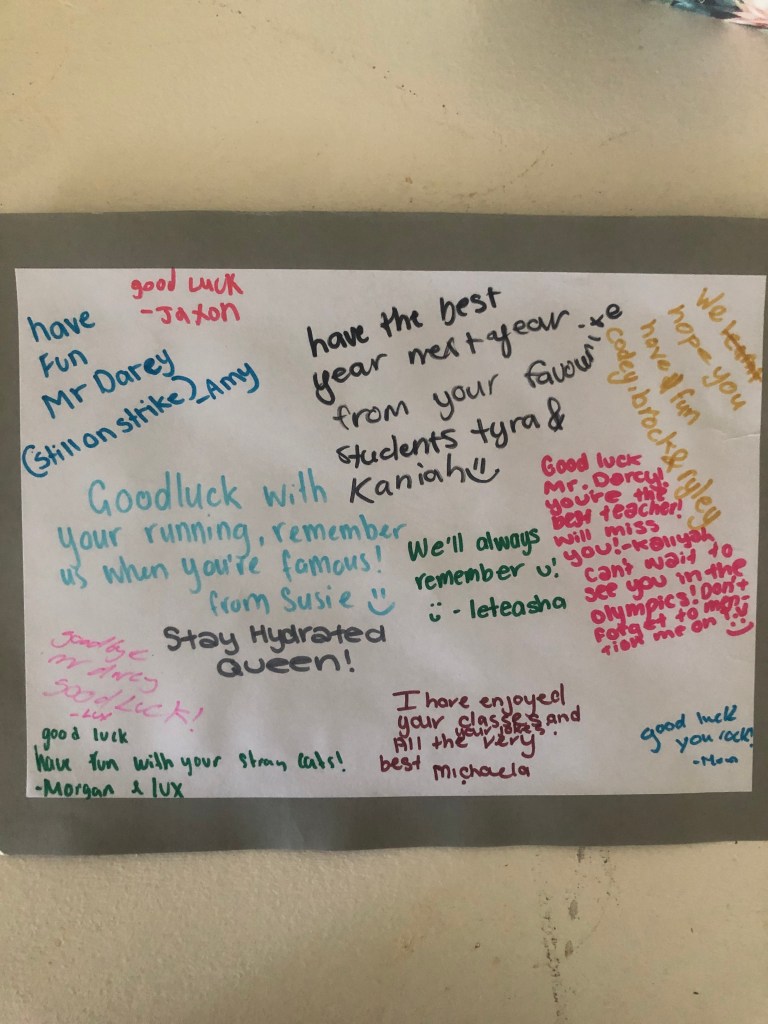 good luck
-Jaxon
have
Fun
Mr Darcy
(still on strike) -Amy
have the best
year next year.
from your favourite
students tyra &
Kaniah
We
hope you
have fun
codey, brock & ryley
Goodluck with
your running, remember
us when you're famous!
from Susie
Good luck
Mr. Darcy!
you're the
best teacher!
will miss
you! -Kaliyah
can't wait to
see you in the
olympics! Don't
forget to men-
tion me on T.V
We'll always
remember u!
- leteasha
Stay Hydrated
Queen!
goodbye
mr darcy
GOOD LUCK!
-Lux
good luck
have fun with your stray cats!
-Morgan & lux
I have enjoyed
your classes and
your jokes!
All the very
best Michaela
good luck
you rock!